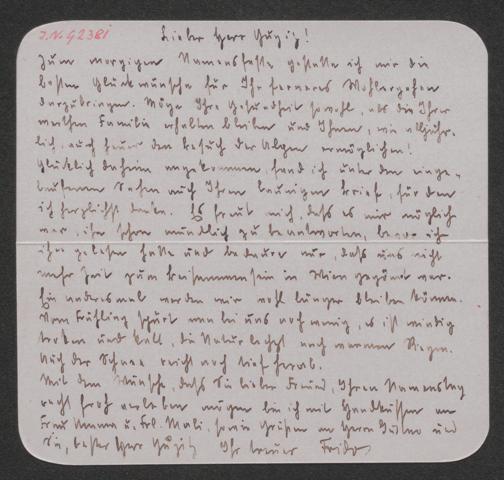 J.N. 92381
Lieber Herr Gugitz!
Zum morgigen Namensfeste gestatte ich mir die
besten Glückwünsche für Ihr ferneres Wohlergehen
darzubringen. Möge Ihre Gesundheit sowohl, als die Ihrer
werthen Familie erhalten bleiben und Ihnen, wie alljähr-
lich, auch heuer den Besuch der Alpen ermöglichen!
Glücklich daheim angekommen, fand ich unter den einge-
laufenen Sachen auch Ihren launigen Brief, für den
ich herzlichst danke. Es freut mich, dass es mir möglich
war, ihn schon mündlich zu beantworten, bevor ich
ihn gelesen hatte und bedaure nur, dass uns nicht
mehr Zeit zum Beisammensein in Wien gegönnt war.
Ein anderesmal werden wir wohl länger bleiben können.
Vom Frühling spürt man bei uns noch wenig, es ist windig
trocken und kalt, die Natur lechzt nach warmem Regen.
Auch der Schnee reicht noch tief herab.
Mit dem Wunsche, dass Sie lieber Freund, Ihren Namenstag
recht froh verleben mögen bin ich mit Handküssen an
Frau Mama u. Frl. Mali, sowie Grüßen an Herrn und
Sie, bester Herr Gugitz Ihr treuer Frido